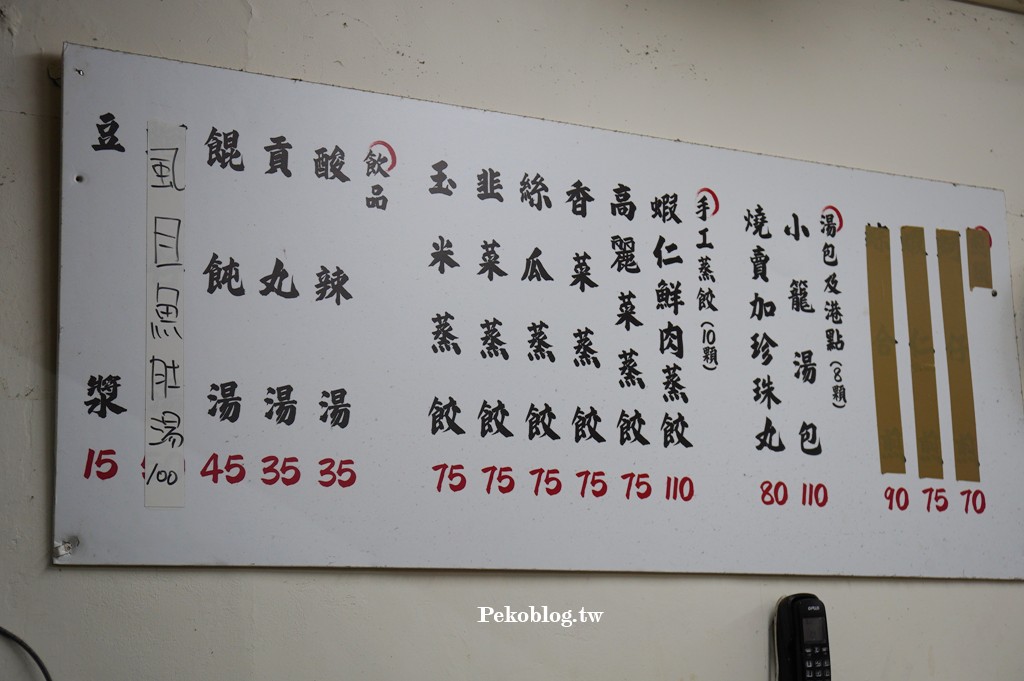 90
75
70
湯包及港點(8顆)
小籠湯包 110
燒賣加珍珠丸 80
手工蒸餃(10顆)
蝦仁鮮肉蒸餃 110
高麗菜蒸餃 75
香菜蒸餃 75
絲瓜蒸餃 75
韭菜蒸餃 75
玉米蒸餃 75
飲品
酸辣湯 35
貢丸湯 35
餛飩湯 45
虱目魚肚湯 100
豆漿 15
Pekoblog.tw